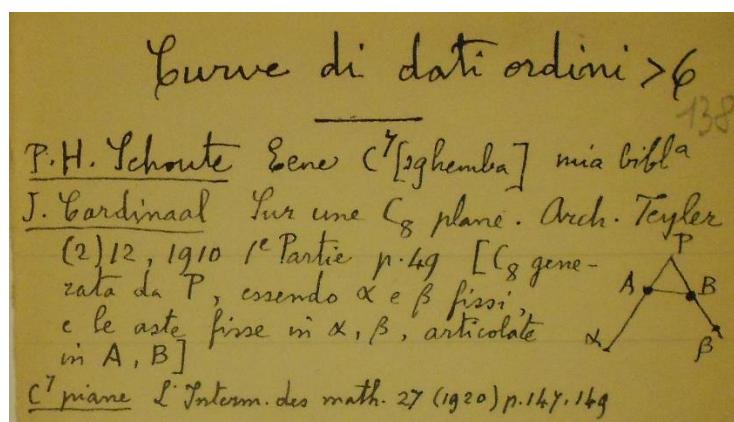 Curve di dati ordini >6
138
P.H. Schoute Eene C⁷ [sghemba] mia bibl.ª
J. Cardinaal Sur une C₈ plane. Arch. Teyler
(2) 12, 1910 1ᵉ Partie p. 49 [C₈ gene-
rata da P, essendo α e β fissi,
e le aste fisse in α, β, articolate
in A, B]
P
A B
α β
C⁷ piane L'Interm. des math. 27 (1920) p. 147, 149